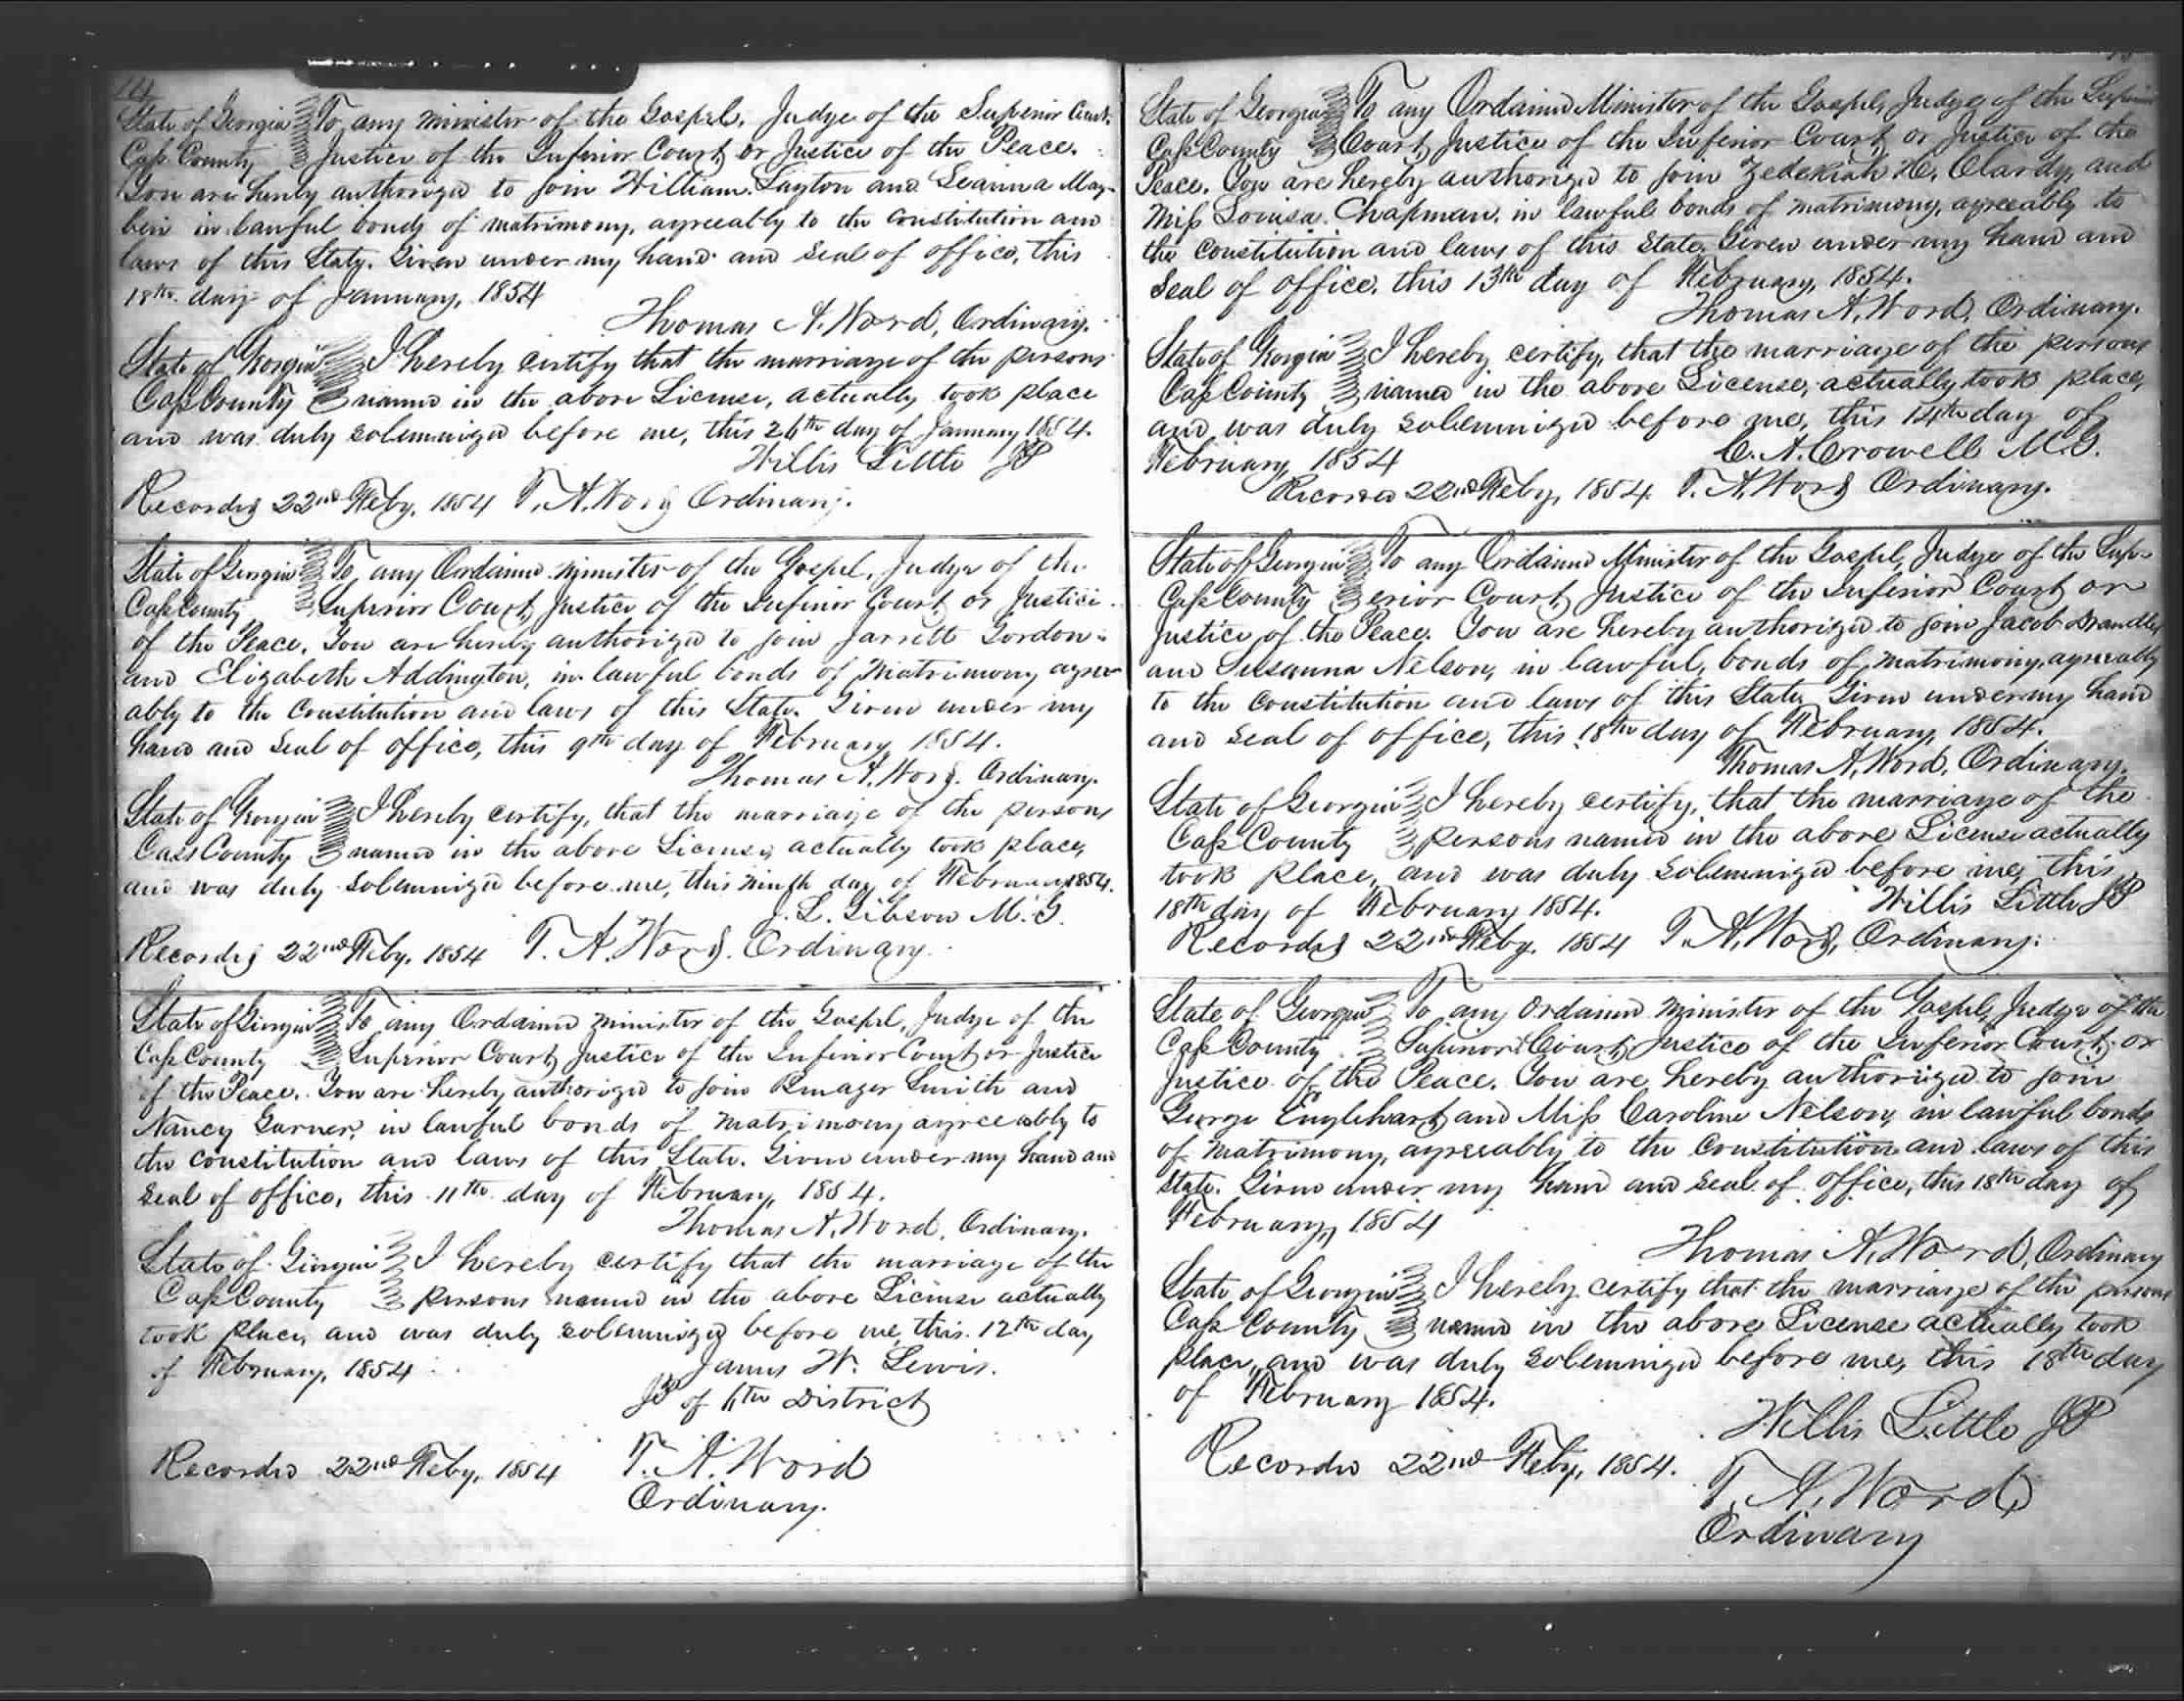 State of Georgia To any minister of the Gospel, Judge of the Superior Court,
Cass County Justice of the Inferior Court or Justice of the Peace.
You are hereby authorized to join William Layton and Leanna May-
bin in lawful bonds of matrimony, agreeably to the constitution and
laws of this State. Given under my hand and seal of office, this
18th day of January, 1854
Thomas A. Word, Ordinary.
State of Georgia I hereby certify that the marriage of the persons
Cass County named in the above License, actually took place
and was duly solemnized before me, this 26th day of January 1854.
Willis Little JP
Recorded 22nd Feby. 1854 T. A. Word Ordinary.
State of Georgia To any Ordained minister of the Gospel, Judge of the
Cass County Superior Court, Justice of the Inferior Court or Justice
of the Peace. You are hereby authorized to join Jarrett Gordon
and Elizabeth Addington, in lawful bonds of matrimony agree-
ably to the constitution and laws of this State. Given under my
hand and seal of office, this 9th day of February 1854.
Thomas A. Word. Ordinary.
State of Georgia I hereby certify, that the marriage of the persons
Cass County named in the above License, actually took place,
and was duly solemnized before me, this ninth day of February 1854.
J. L. Gibson M. G.
Recorded 22nd Feby. 1854 T. A. Word. Ordinary.
State of Georgia To any Ordained minister of the Gospel, Judge of the
Cass County Superior Court, Justice of the Inferior Court or Justice
of the Peace. You are hereby authorized to join Smith and
Nancy Garner, in lawful bonds of matrimony agreeably to
the constitution and laws of this State. Given under my hand and
seal of office, this 11th day of February, 1854.
Thomas A. Word, Ordinary.
State of Georgia I hereby certify that the marriage of the
Cass County persons named in the above License actually
took place, and was duly solemnized before me, this 12th day
of February, 1854
James W. Lewis.
JP of 6th District
Recorded 22nd Feby, 1854 T. A. Word
Ordinary.
State of Georgia To any Ordained Minister of the Gospel, Judge of the Superior
Cass County Court, Justice of the Inferior Court or Justice of the
Peace. You are hereby authorized to join Zedekiah H. Clardy, and
Miss Louisa Chapman, in lawful bonds of matrimony, agreeably to
the constitution and laws of this State. Given under my hand and
seal of office, this 13th day of February, 1854.
Thomas A. Word, Ordinary.
State of Georgia I hereby certify, that the marriage of the persons
Cass County named in the above License, actually took place,
and was duly solemnized before me, this 14th day of
February, 1854 C. A. Crowell M.G.
Recorded 22nd Feby, 1854. T. A. Word Ordinary.
State of Georgia To any Ordained Minister of the Gospel, Judge of the Sup-
Cass County erior Court, Justice of the Inferior Court or
Justice of the Peace. You are hereby authorized to join Jacob Brandley
and Susanna Nelson, in lawful bonds of matrimony, agreeably
to the constitution and laws of this State. Given under my hand
and seal of office, this 18th day of February, 1854.
Thomas A. Word, Ordinary.
State of Georgia I hereby certify, that the marriage of the
Cass County persons named in the above License actually
took place, and was duly solemnized before me, this
18th day of February 1854. Willis Little JP
Recorded 22nd Feby. 1854 T. A. Word, Ordinary.
State of Georgia To any ordained minister of the Gospel, Judge of the
Cass County Superior Court, Justice of the Inferior Court, or
Justice of the Peace. You are hereby authorized to join
George Englehart and Miss Caroline Nelson, in lawful bonds
of matrimony, agreeably to the constitution and laws of this
State. Given under my hand and seal of office, this 18th day of
February, 1854
Thomas A. Word, Ordinary
State of Georgia I hereby certify that the marriage of the persons
Cass County named in the above License actually took
place, and was duly solemnized before me, this 18th day
of February 1854.
Willis Little JP
Recorded 22nd Feby, 1854. T. A. Word
Ordinary